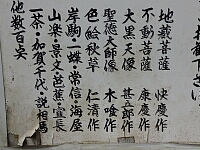 地蔵菩薩 快慶作
不動菩薩 康慶作
大黒天像 甚五郎作
聖徳太師像 木喰作
色絵秋草 仁清作
岸駒・一蝶・常信・海屋
山楽・景文・芭蕉・宣長
一茶・加賀千代・説相馬
他数百点